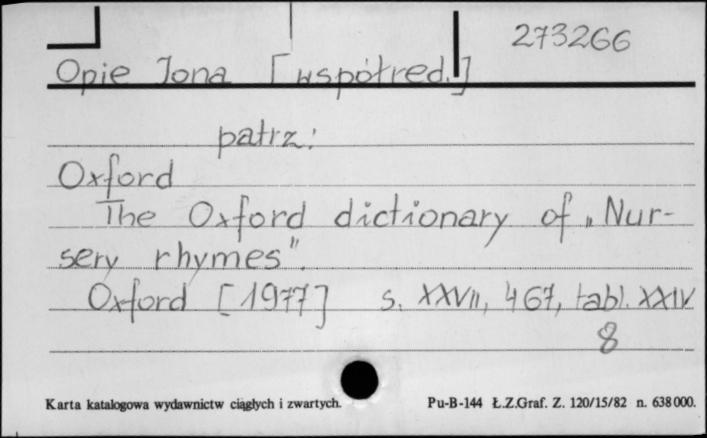 273266
Opie Iona [współred.]
patrz:
Oxford
The Oxford dictionary of „Nur-
sery rhymes".
Oxford [1977] s. XXVII, 467, tabl. XXIV
8
Karta katalogowa wydawnictw ciągłych i zwartych. Pu-B-144 Ł.Z.Graf. Z. 120/15/82 n. 638000.